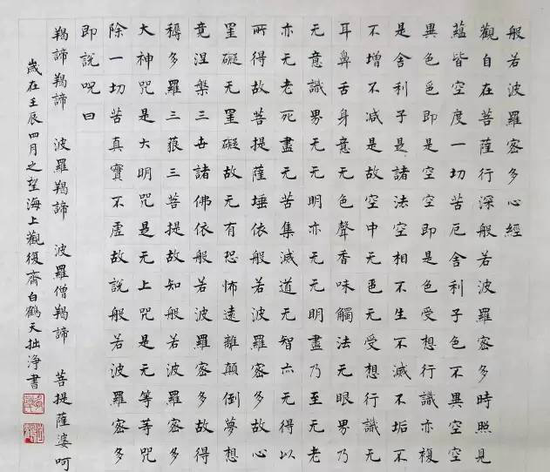 般若波羅密多心經
觀自在菩薩行深般若波羅密多時照見
蘊皆空度一切苦厄舍利子色不異空空
異色色即是空空即是色受想行識亦復
是舍利子是諸法空相不生不滅不垢不
不增不減是故空中无色无受想行識无
耳鼻舌身意无色聲香味觸法无眼界乃
无意識界无无明亦无无明盡乃至无老
亦无老死盡无苦集滅道无智亦无得以
所得故菩提薩埵依般若波羅密多故心
罣礙无罣礙故无有恐怖遠離顛倒夢想
竟涅槃三世諸佛依般若波羅密多故得
耨多羅三藐三菩提故知般若波羅密多
大神咒是大明咒是无上咒是无等等咒
除一切苦真實不虛故說般若波羅密多
即說呪曰
羯諦羯諦 波羅羯諦 波羅僧羯諦 菩提薩婆呵
歲在壬辰四月之望海上觀復齋白鶴天拙淨書